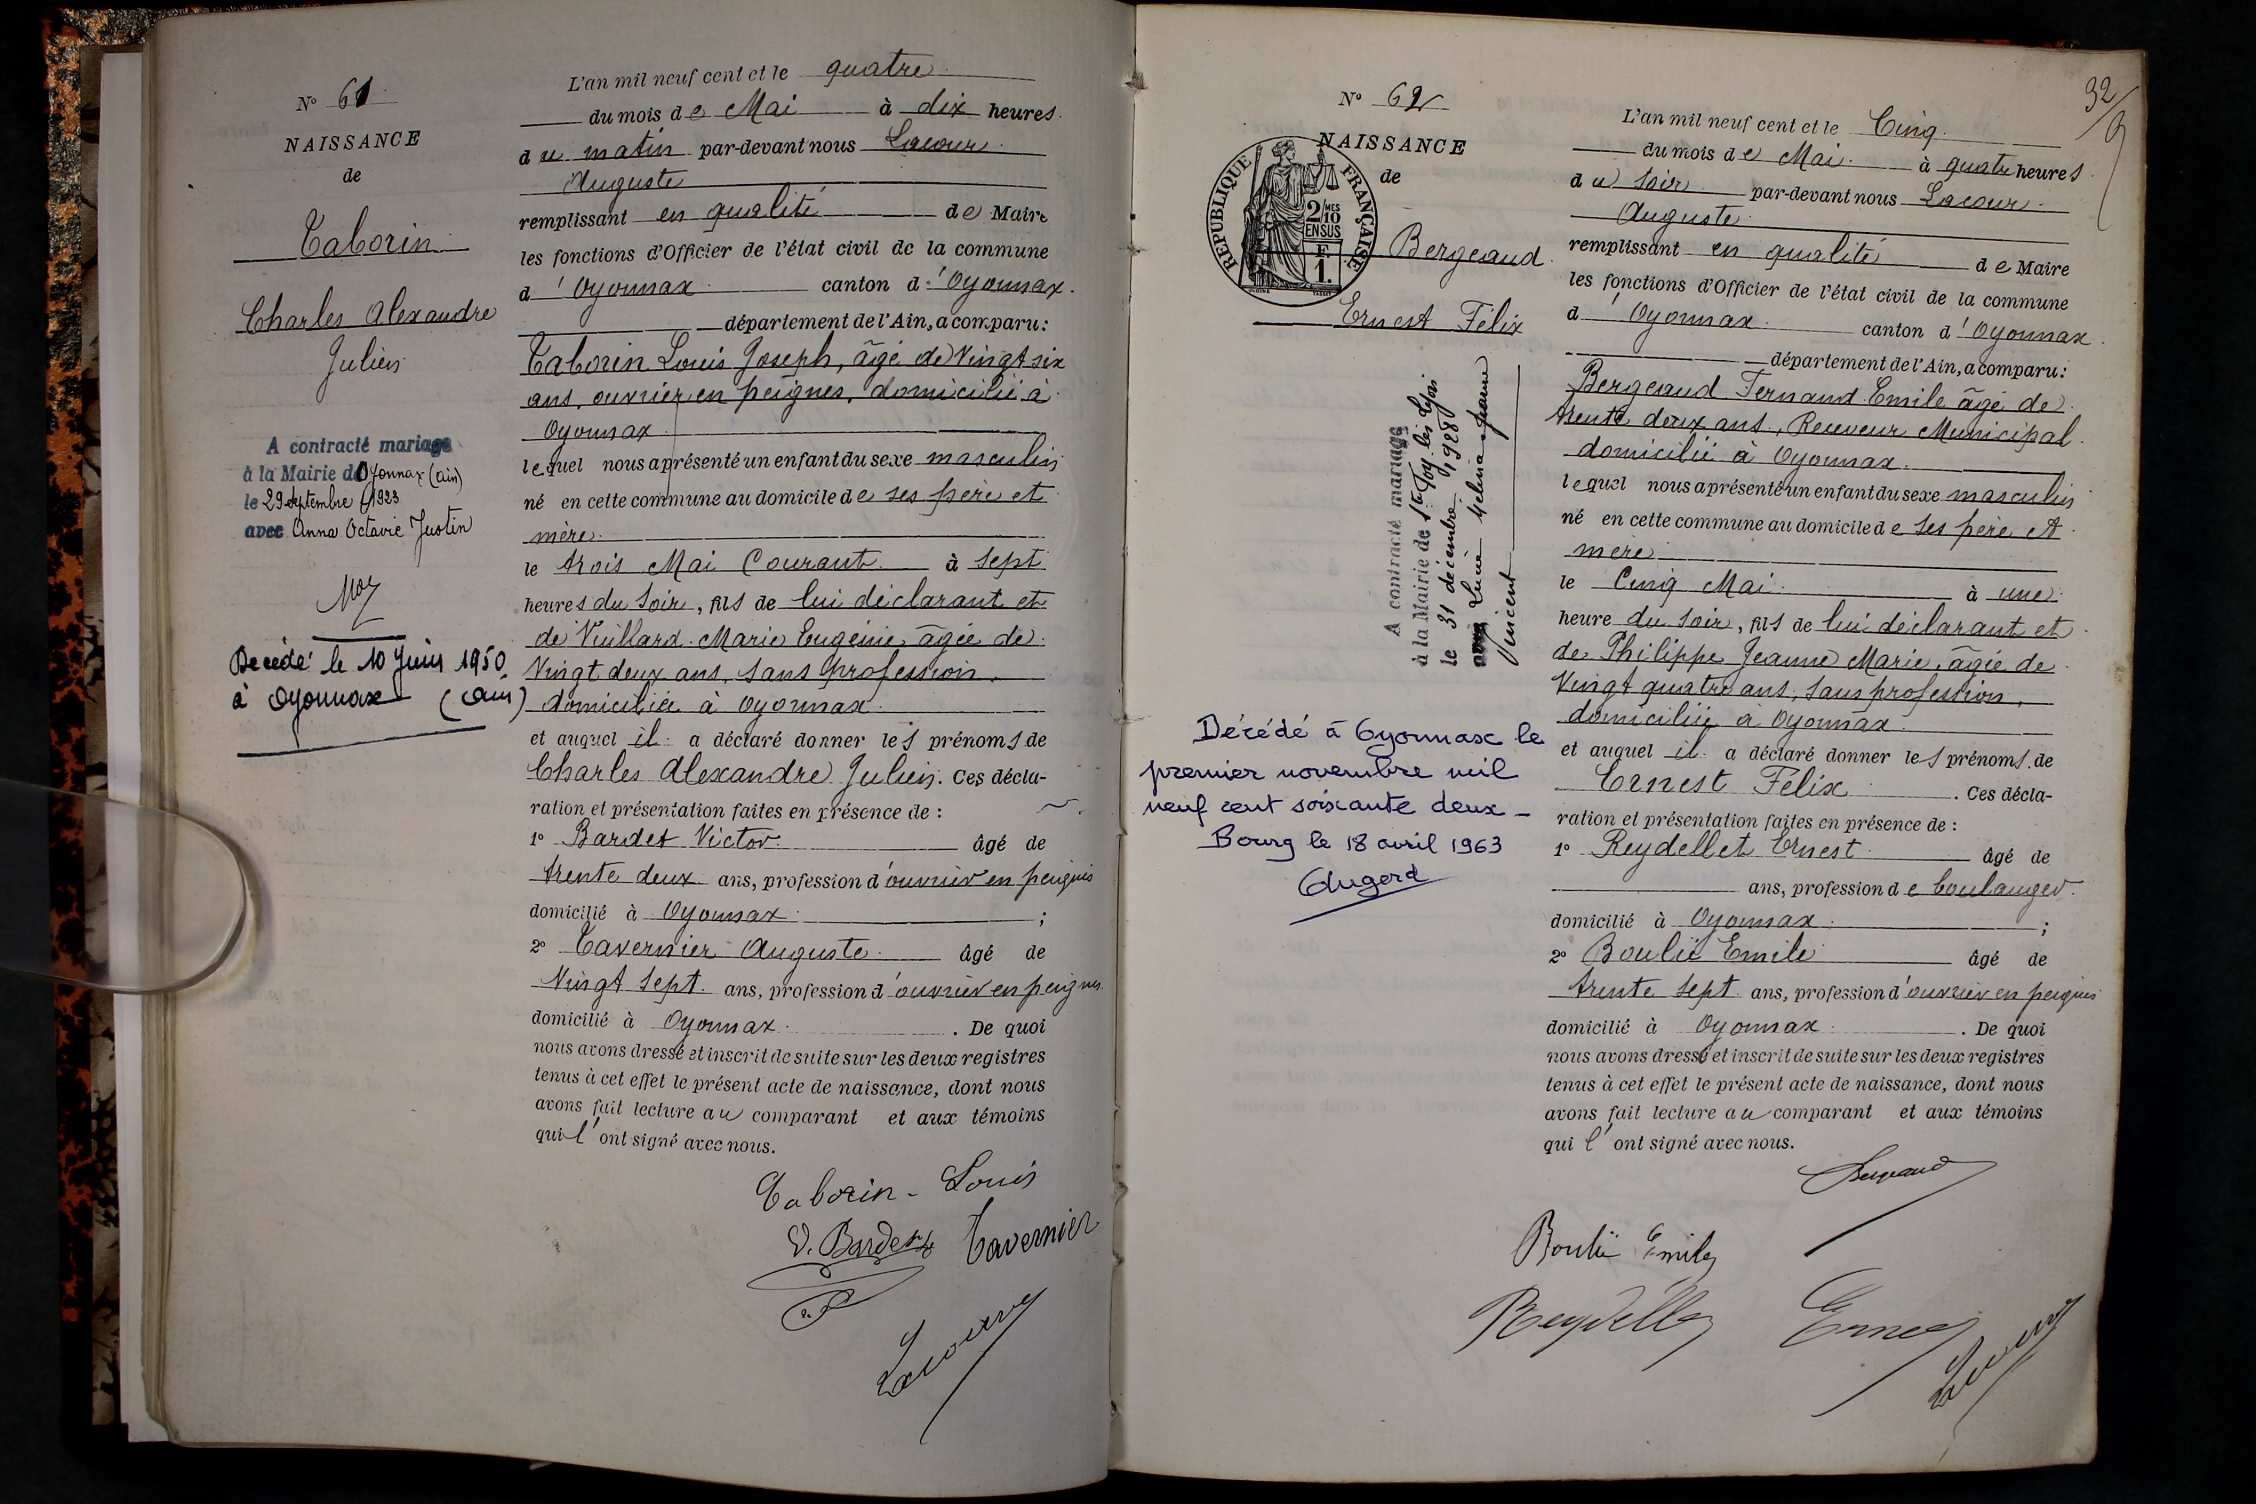 N° 61
NAISSANCE
de
Taborin
Charles Alexandre
Julien
A contracté mariage
à la Mairie d'Oyonnax (Ain)
le 29 septembre 1923
avec Anna Octavie Justin
Décédé le 10 Juin 1950
à Oyonnax (Ain)
L'an mil neuf cent et le quatre
du mois de Mai à dix heures
du matin par-devant nous Lacour
Auguste
remplissant en qualité de Maire
les fonctions d'Officier de l'état civil de la commune
d'Oyonnax canton d'Oyonnax.
département de l'Ain, a comparu:
Taborin Louis Joseph, âgé de Vingt six
ans, ouvrier en peignes, domicilié à
Oyonnax
lequel nous a présenté un enfant du sexe masculin
né en cette commune au domicile de ses père et
mère
le trois Mai Courant à sept
heures du soir, fils de lui déclarant et
de Vuillard Marie Eugénie âgée de
Vingt deux ans, sans profession,
domiciliée à Oyonnax
et auquel il a déclaré donner les prénoms de
Charles Alexandre Julien. Ces décla-
ration et présentation faites en présence de :
1° Bardet Victor âgé de
trente deux ans, profession d'ouvrier en peignes
domicilié à Oyonnax ;
2° Tavernier Auguste âgé de
Vingt sept ans, profession d'ouvrier en peignes
domicilié à Oyonnax. De quoi
nous avons dressé et inscrit de suite sur les deux registres
tenus à cet effet le présent acte de naissance, dont nous
avons fait lecture au comparant et aux témoins
qui l'ont signé avec nous.
Taborin - Louis
V. Bardet Tavernier
Lacour
32
N° 62
NAISSANCE
de
REPUBLIQUE FRANÇAISE
2/10
MES
EN SUS
F.
1.
Bergeaud
Ernest Félix
A contracté mariage
à la Mairie de Ste Foy-lès-Lyon
le 31 décembre 1928
avec Lucie Mélina Jeanne
Vincent
Décédé à Oyonnax le
premier novembre mil
neuf cent soixante deux -
Bourg le 18 avril 1963
L'an mil neuf cent et le Cinq
du mois de Mai à quatre heures
du soir par-devant nous Lacour
Auguste
remplissant en qualité de Maire
les fonctions d'Officier de l'état civil de la commune
d'Oyonnax canton d'Oyonnax.
département de l'Ain, a comparu:
Bergeaud Fernand Emile âgé de
trente deux ans, Receveur Municipal
domicilié à Oyonnax
lequel nous a présenté un enfant du sexe masculin
né en cette commune au domicile de ses père et
mère
le Cinq Mai à une
heure du soir, fils de lui déclarant et
de Philippe Jeanne Marie, âgée de
Vingt quatre ans, sans profession,
domiciliée à Oyonnax
et auquel il a déclaré donner les prénoms de
Ernest Félix. Ces décla-
ration et présentation faites en présence de :
1° Reydellet Ernest âgé de
ans, profession de boulanger
domicilié à Oyonnax ;
2° Boulié Emile âgé de
trente sept ans, profession d'ouvrier en peignes
domicilié à Oyonnax. De quoi
nous avons dressé et inscrit de suite sur les deux registres
tenus à cet effet le présent acte de naissance, dont nous
avons fait lecture au comparant et aux témoins
qui l'ont signé avec nous.
Bergeaud
Boulié Emile
Reydellet Ernest
Lacour